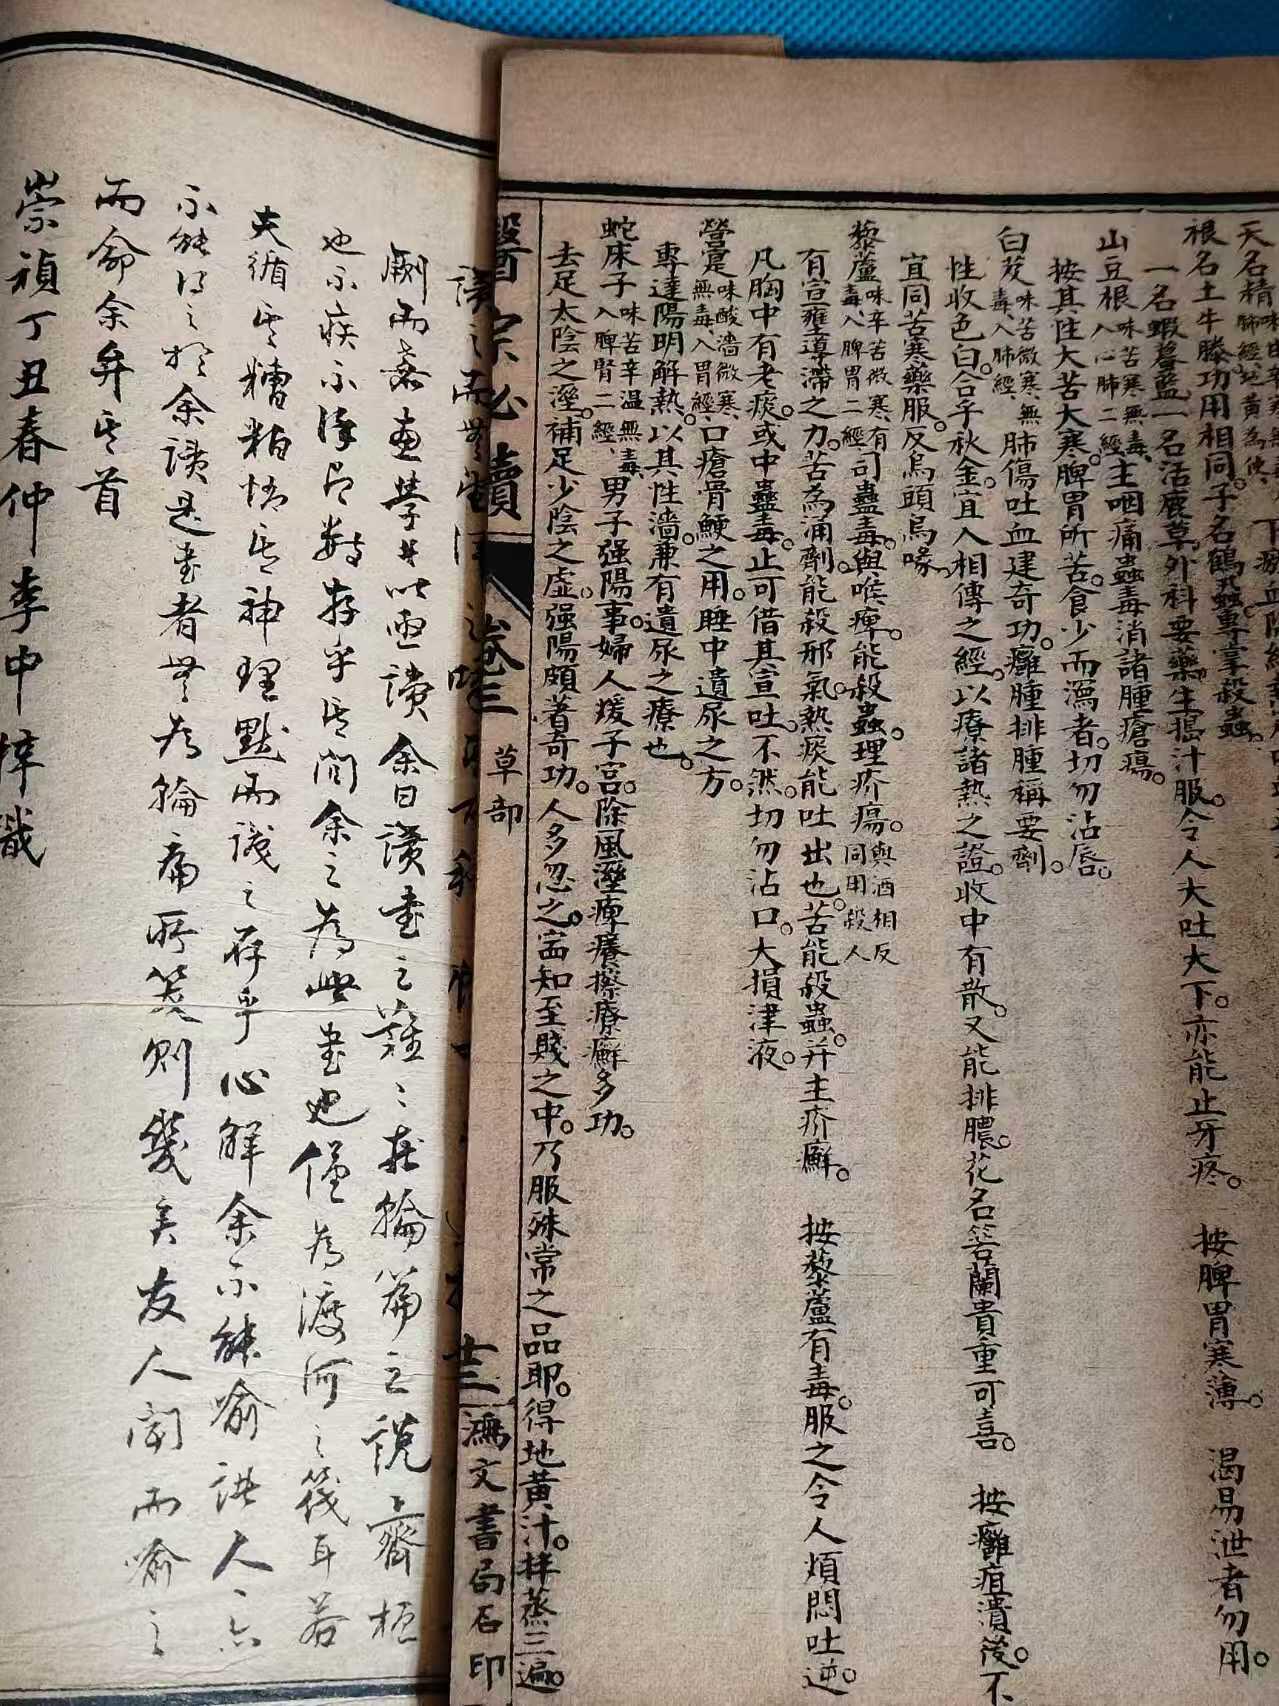 天名精
根名土牛膝功用相同子名鶴蝨專掌殺蟲
一名蝦蟇藍一名活鹿草外科要藥生搗汁服令人大吐大下亦能止牙疼。 按脾胃寒薄。 渴易泄者勿用。
山豆根味苦寒無毒入心肺二經主咽痛蟲毒消諸腫瘡瘍。
按其性大苦大寒脾胃所苦食少而瀉者切勿沾唇。
白芨味苦微寒無毒入肺經肺傷吐血建奇功。癰腫排膿稱要劑。
性收色白。合乎秋金。宜入相傳之經。以療諸熱之證。收中有散。又能排膿。花名箬蘭貴重可喜。 按癰疽潰後。不
宜同苦寒藥服。反烏頭烏喙。
藜蘆味辛苦微寒有毒入脾胃二經司蠱毒。與喉痺。能殺蟲。理疥瘍。與酒相反同用殺人
有宣壅導滯之力。苦為涌劑。能殺邪氣熱痰。能吐出也。苦能殺蟲。并主疥癬。 按藜蘆有毒。服之令人煩悶吐逆。
凡胸中有老痰。或中蠱毒。止可借其宣吐。不然切勿沾口。大損津液。
營實味酸濇微寒無毒入胃經口瘡骨鯁之用。睡中遺尿之方。
專達陽明解熱。以其性濇兼有遺尿之療也。
蛇床子味苦辛溫無毒入脾腎二經男子强陽事。婦人煖子宮。除風溼痺癢。擦療癬多功。
去足太陰之溼。補足少陰之虛。强陽頗著奇功。人多忽之。寧知至賤之中。乃服殊常之品耶。得地黃汁。拌蒸三遍。
醫宗必讀 卷三 草部 廿三 鴻文書局石印
劂而齋画學士以西讀余曰讀書之難難在輪篇之說齊桓
也不疾不徐有數存乎其間余之為此書也僅為渡河之筏耳若
夫循其糟粕悟其神理默而識之存乎心解余不能喻諸人人亦
不能得之於余讀是書者無為輪扁所笑則幾矣友人聞而喻之
而命余弁其首
崇禎丁丑春仲李中梓識